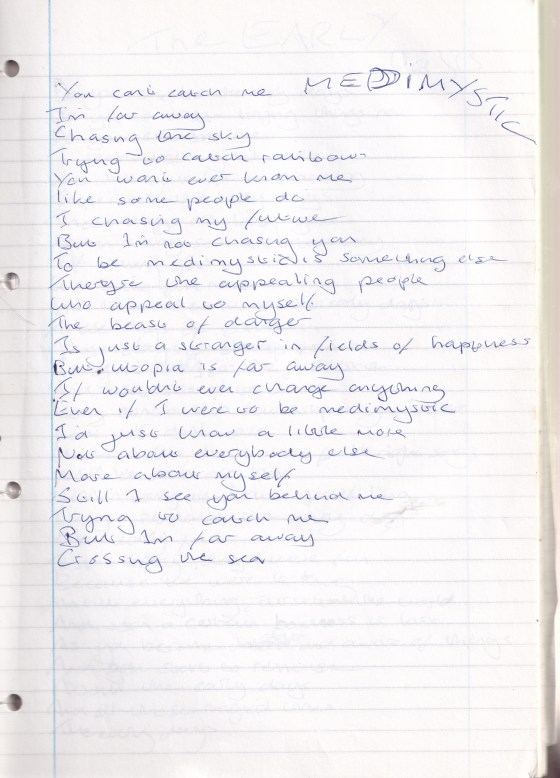 MEDIMYSTIC
You can't catch me
I'm far away
Chasing the sky
Trying to catch rainbows
You won't ever know me
like some people do
I chasing my future
But I'm not chasing you
To be medimystic is something else
There's the appealing people
who appeal to myself
The beast of danger
Is just a stranger in fields of happiness
But utopia is far away
It wouldn't ever change anything
Even if I were to be medimystic
I'd just know a little more
Not about everybody else
More about myself
Still I see you behind me
Trying to catch me
But I'm far away
Crossing the sea